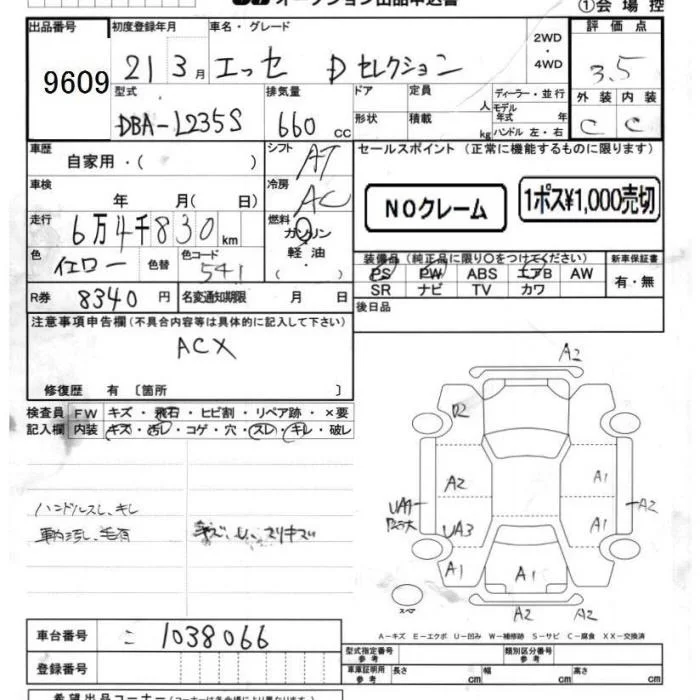 オークション出品申込書
①会場控
出品番号 初度登録年月 車名・グレード 2WD・4WD 評価点
9609 21 3月 エッセ Dセレクション 3.5
型式 排気量 ドア 定員 人 ディーラー・並行 外装 内装
DBA-L235S 660cc 形状 積載 kg モデル年式 年 ハンドル 左・右 C C
車歴 自家用・( ) シフト AT セールスポイント (正常に機能するものに限ります)
車検 年 月( 日) 冷房 AC NOクレーム 1ポス¥1,000売切
走行 6万4千830km 燃料 ガソリン・軽油・( )
色 イエロー 色替 色コード 541 装備品 (純正品に限り○をつけてください) 新車保証書
PS PW ABS エアB AW 有・無
SR ナビ TV カワ
R券 8340円 名変通知期限 月 日 後日品
注意事項申告欄(不具合内容等は具体的に記入して下さい)
ACX
修復歴 有 〔箇所 〕
検査員記入欄 FW キズ・飛石・ヒビ割・リペア跡・×要
内装 キズ・汚レ・コゲ・穴・スレ・キレ・破レ
ハンドルスレ、キレ
A2
D2
A2 A1
A2
UA3 A1
A1 A1
A2 A2
スペア
A-キズ E-エクボ U-凹み W-補修跡 S-サビ C-腐食 XX-交換済
車台番号 1038066
型式指定番号 参考 類別区分番号 参考
登録番号 車庫証明用 参考 長さ cm 幅 cm 高さ cm
希望出品コーナー(コーナーは各会場により異なります)